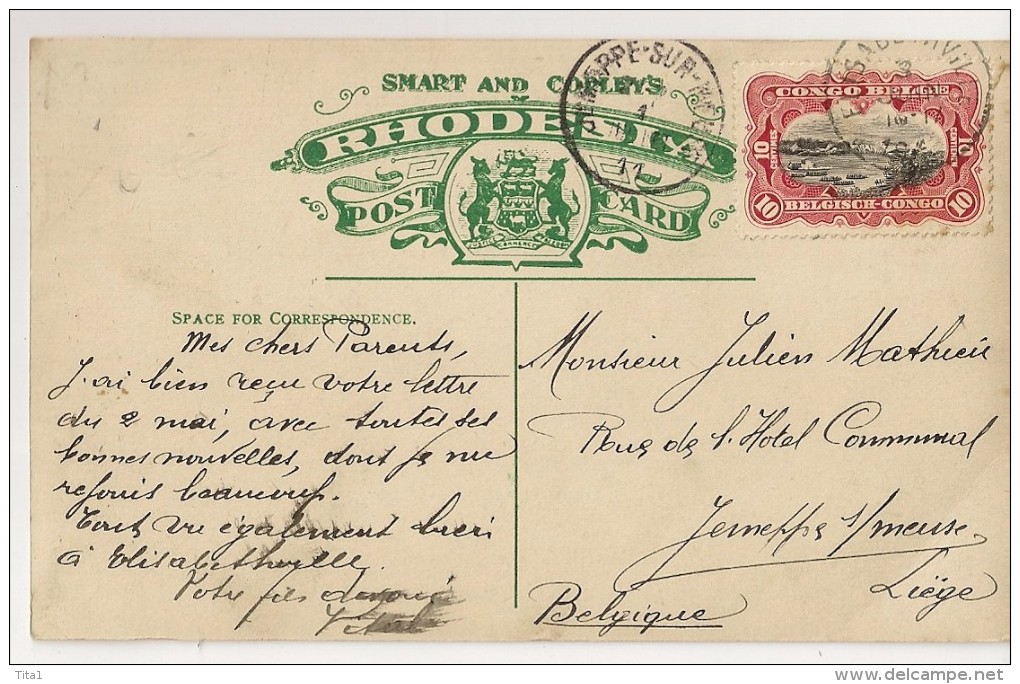 SMART AND COPLEY'S
RHODESIC
POST CARD
JEMAPPE-SUR-MEUSE
11
CONGO BELGE
10 CENTIMES
10 CENTIEMEN
10 BELGISCH-CONGO 10
SPACE FOR CORRESPONDENCE.
Mes chers Parents,
J'ai bien reçu votre lettre
du 2 mai, avec toutes ses
bonnes nouvelles, dont je me
rejouis beaucoup.
Tout va également bien
à Elisabethville.
Votre fils dévoué
Monsieur Julien Mathieu
Rue de l'Hotel Communal
Jemeppe s/meuse
Liège
Belgique
Tita1
www.delcampe.net